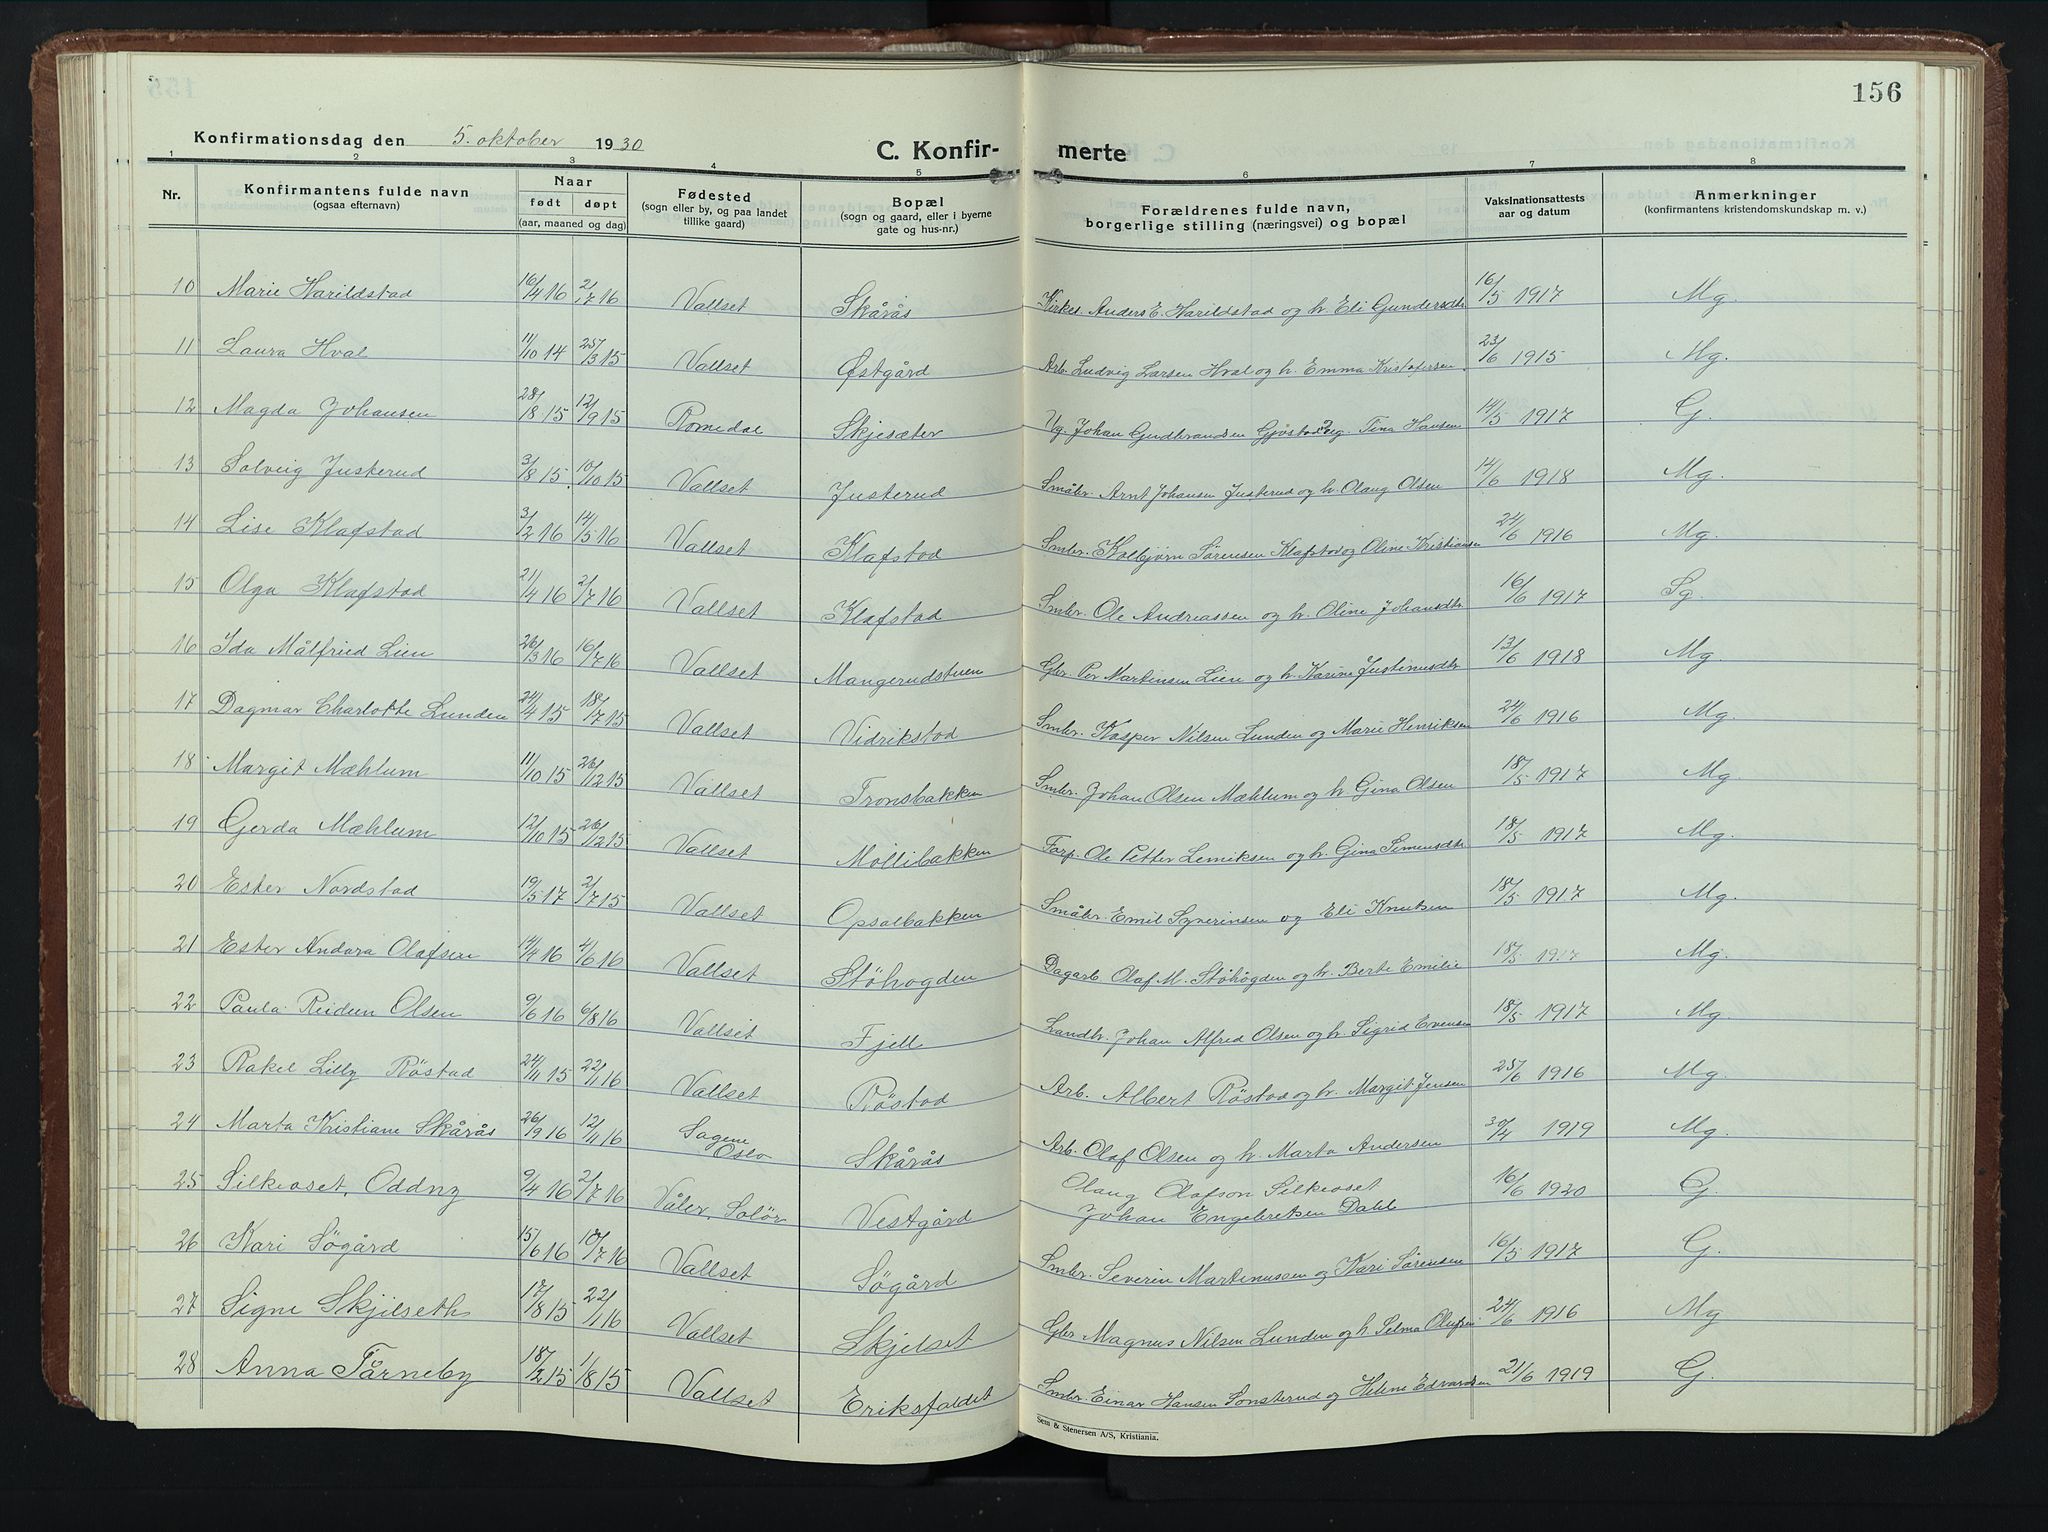 156
Konfirmationsdag den 5. oktober 1930
C. Konfir- merte
1 2 3 4 5 6 7 8
Nr. Konfirmantens fulde navn (ogsaa efternavn) Naar født døpt (aar, maaned og dag) Fødested (sogn eller by, og paa landet tillike gaard) Bopæl (sogn og gaard, eller i byerne gate og hus-nr.) Forældrenes fulde navn, borgerlige stilling (næringsvei) og bopæl Vaksinationsattests aar og datum Anmerkninger (konfirmantens kristendomskundskap m. v.)
10 Marie Harildstad 16/4 16 2/7 16 Vallset Skårås Kirkes. Anders E. Harildstad og h. Eli Gundersdtr 16/5 1917 Mg.
11 Laura Hval 11/10 14 25/3 15 Vallset Østgård Arb. Ludvig Larsen Hval og h. Emma Kristofersen 23/6 1915 Mg.
12 Magda Johansen 28/8 15 12/9 15 Romedal Skjesæter Ug. Johan Gudbrandsen Gjøstad? ug. Tina Hansen 14/5 1917 G.
13 Solveig Justerud 3/8 15 10/10 15 Vallset Justerud Småbr. Arnt Johansen Justerud og h. Olaug Olsen 14/6 1918 Mg.
14 Lise Klafstad 3/2 16 14/5 16 Vallset Klafstad Smbr. Kolbjørn Sørensen Klafstad og Oline Kristiansen 24/6 1916 Mg.
15 Olga Klafstad 21/4 16 2/7 16 Vallset Klafstad Smbr. Ole Andreassen og h. Oline Johansdtr 16/6 1917 Sg.
16 Ida Målfried Lien 26/3 16 16/7 16 Vallset Mangerudstuen Gbr. Per Martinsen Lien og h. Karine Justinusdtr 13/6 1918 Mg.
17 Dagmar Charlotte Lunden 24/4 15 18/7 15 Vallset Vidrikstad Smbr. Kasper Nilsen Lunden og Marie Henriksen 24/6 1916 Mg.
18 Margit Mæhlum 11/10 15 26/12 15 Vallset Tronsbakken Smbr. Johan Olsen Mæhlum og h. Gina Olsen 18/5 1917 Mg.
19 Gerda Mæhlum 12/10 15 26/12 15 Vallset Möllibakken Forp. Ole Petter Lemiksen og h. Gina Simensdtr 18/5 1917 Mg.
20 Ester Nordstad 19/5 17 2/7 15 Vallset Opsalbakken Småbr. Emil Syverinsen og Eli Knutsen 18/5 1917 Mg.
21 Ester Andora Olafsen 14/4 16 4/6 16 Vallset Stöhogden Dagarb. Olaf M. Stöhögden og h. Berte Emilie 18/5 1917 Mg.
22 Paula Reidun Olsen 9/6 16 6/8 16 Vallset Fjell Landbr. Johan Alfred Olsen og h. Sigrid Evensen 18/5 1917 Mg.
23 Rakel Lilly Röstad 24/11 15 22/1 16 Vallset Röstad Arb. Albert Röstad og h. Margit Jensen 25/6 1916 Mg.
24 Marta Kristiane Skårås 26/9 16 12/11 16 Sagene Oslo Skårås Arb. Olaf Olsen og h. Marta Andersen 30/4 1919 Mg.
25 Silkeoset, Oddny 9/4 16 2/7 16 Våler, Solör Vestgård Olaug Olafson Silkeoset
Johan Engebretsen Dahl 16/6 1920 G.
26 Kari Sögård 15/6 16 10/7 16 Vallset Sögård Smbr. Severin Martinussen og Kari Sörensen 16/5 1917 G.
27 Signe Skjilseth 17/8 15 22/1 16 Vallset Skjelset Gbr Magnus Nilsen Lunden og h Selma Olufsen 24/6 1916 Mg
28 Anna Tårneby 18/2 15 1/8 15 Vallset Eriksfaldet Smbr. Einar Hansen Sonsterud og Helene Edvardsen 21/6 1919 G.
Sem & Stenersen A/S, Kristiania.